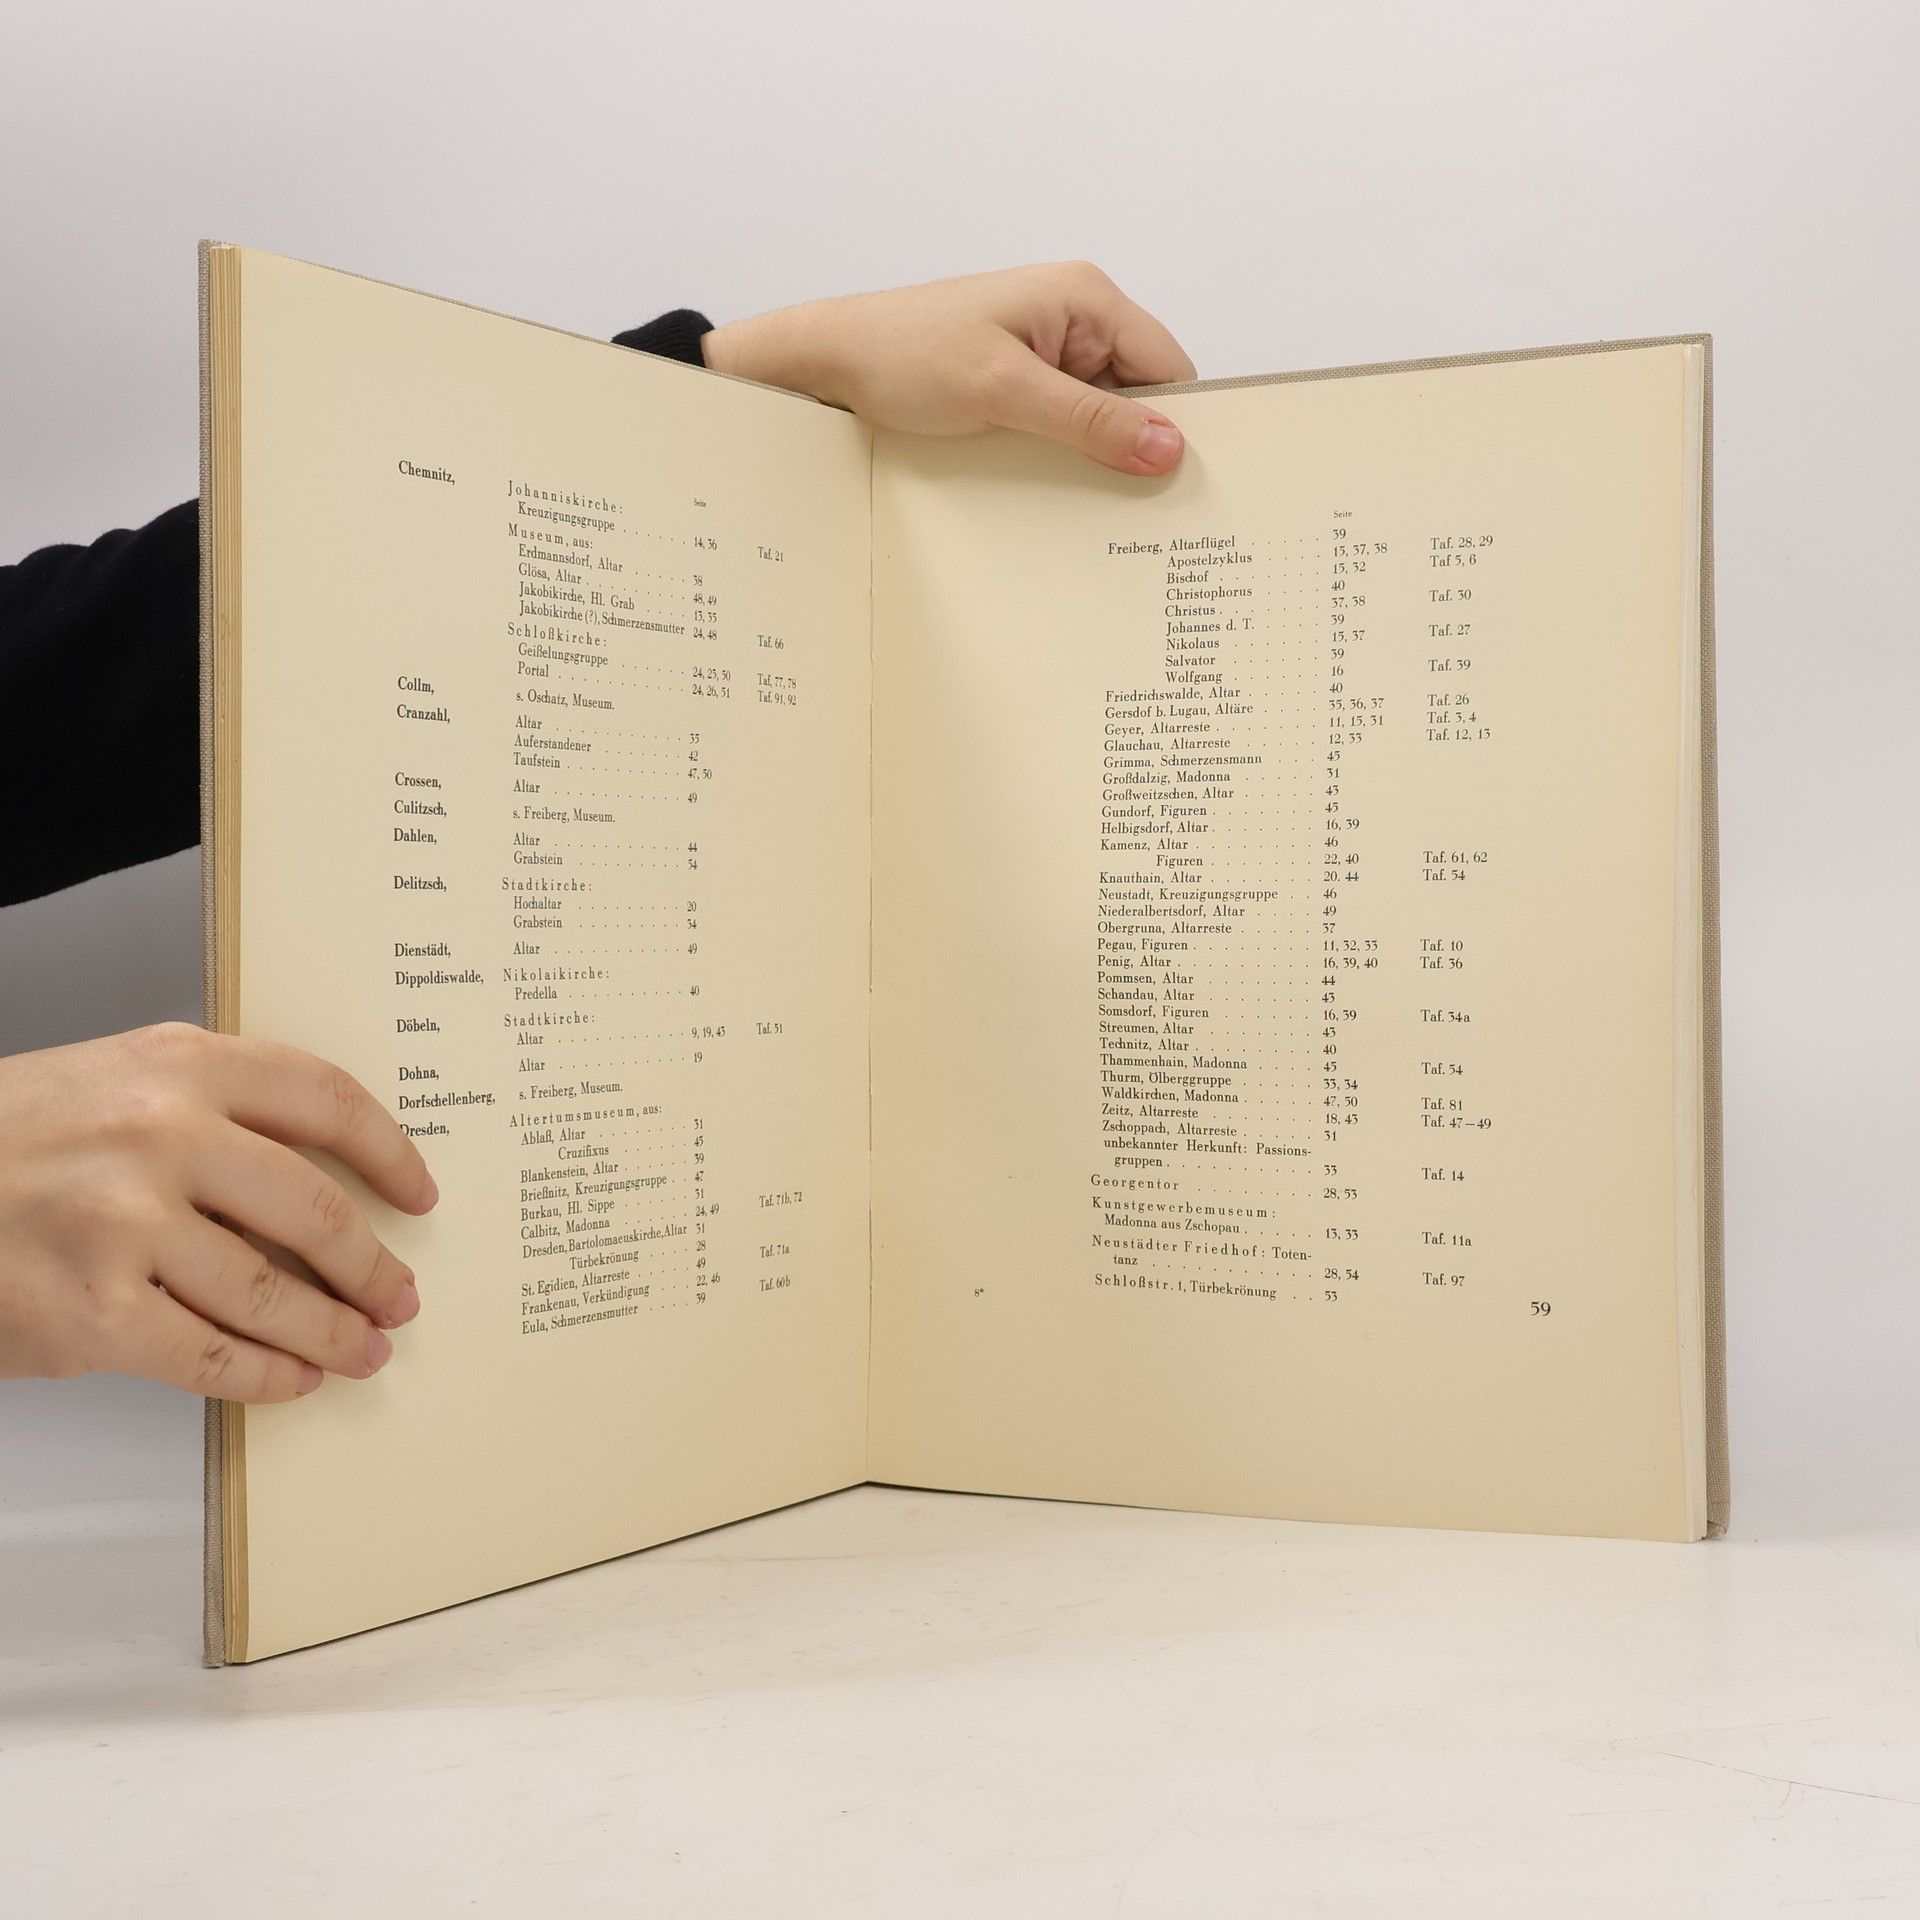 Seite
Chemnitz, Johanniskirche:
Kreuzigungsgruppe . . . . . . 14, 36 Taf. 21
Museum, aus:
Erdmannsdorf, Altar . . . . . 38
Glösa, Altar . . . . . . . . . 48, 49
Jakobikirche, Hl. Grab . . . . 15, 35
Jakobikirche (?), Schmerzensmutter 24, 48 Taf. 66
Schloßkirche:
Geißelungsgruppe . . . . . . 24, 25, 50 Taf. 77, 78
Portal . . . . . . . . . . . 24, 26, 51 Taf. 91, 92
Collm, s. Oschatz, Museum.
Cranzahl, Altar . . . . . . . . . . . 35
Auferstandener . . . . . . . 42
Taufstein . . . . . . . . . . 47, 50
Crossen, Altar . . . . . . . . . . . 49
Culitzsch, s. Freiberg, Museum.
Dahlen, Altar . . . . . . . . . . . 44
Grabstein . . . . . . . . . 54
Delitzsch, Stadtkirche:
Hochaltar . . . . . . . . . 20
Grabstein . . . . . . . . . 54
Dienstädt, Altar . . . . . . . . . . . 49
Dippoldiswalde, Nikolaikirche:
Predella . . . . . . . . . . 40
Döbeln, Stadtkirche:
Altar . . . . . . . . . . . 9, 19, 43 Taf. 51
Dohna, Altar . . . . . . . . . . . 19
Dorfschellenberg, s. Freiberg, Museum.
Dresden, Altertumsmuseum, aus:
Ablaß, Altar . . . . . . . . 31
Cruzifixus . . . . . 45
Blankenstein, Altar . . . . . . 39
Brießnitz, Kreuzigungsgruppe . . 47
Burkau, Hl. Sippe . . . . . . 31
Calbitz, Madonna . . . . . . 24, 49 Taf. 71b, 72
Dresden, Bartolomaeuskirche, Altar 31
Türbekrönung . . . . 28
St. Egidien, Altarreste . . . . . 49 Taf. 71a
Frankenau, Verkündigung . . . 22, 46
Eula, Schmerzensmutter . . . . 39 Taf. 60b
Seite
Freiberg, Altarflügel . . . . . 39
Apostelzyklus . . . . 15, 37, 38 Taf. 28, 29
Bischof . . . . . . . 15, 32 Taf 5, 6
Christophorus . . . . 40
Christus . . . . . . . 37, 38 Taf. 30
Johannes d. T. . . . . 39
Nikolaus . . . . . . 15, 37 Taf. 27
Salvator . . . . . . 39
Wolfgang . . . . . . 16 Taf. 39
Friedrichswalde, Altar . . . . . 40
Gersdof b. Lugau, Altäre . . . . 35, 36, 37 Taf. 26
Geyer, Altarreste . . . . . . . 11, 15, 31 Taf. 3, 4
Glauchau, Altarreste . . . . . 12, 33 Taf. 12, 13
Grimma, Schmerzensmann . . . 45
Großdalzig, Madonna . . . . . 31
Großweitzschen, Altar . . . . . 43
Gundorf, Figuren . . . . . . . 45
Helbigsdorf, Altar . . . . . . . 16, 39
Kamenz, Altar . . . . . . . . 46
Figuren . . . . . . . 22, 40 Taf. 61, 62
Knauthain, Altar . . . . . . . 20. 44 Taf. 54
Neustadt, Kreuzigungsgruppe . . 46
Niederalbertsdorf, Altar . . . . 49
Obergruna, Altarreste . . . . . 37
Pegau, Figuren . . . . . . . . 11, 32, 33 Taf. 10
Penig, Altar . . . . . . . . . 16, 39, 40 Taf. 36
Pommsen, Altar . . . . . . . 44
Schandau, Altar . . . . . . . 43
Somsdorf, Figuren . . . . . . 16, 39 Taf. 34a
Streumen, Altar . . . . . . . 43
Technitz, Altar . . . . . . . . 40
Thammenhain, Madonna . . . . 45 Taf. 54
Thurm, Ölberggruppe . . . . . 33, 34
Waldkirchen, Madonna . . . . . 47, 50 Taf. 81
Zeitz, Altarreste . . . . . . . 18, 43 Taf. 47—49
Zschoppach, Altarreste . . . . . 31
unbekannter Herkunft: Passions-
gruppen . . . . . . . . . . 33 Taf. 14
Georgentor . . . . . . . . 28, 53
Kunstgewerbemuseum:
Madonna aus Zschopau . . . . . 13, 33 Taf. 11a
Neustädter Friedhof: Toten-
tanz . . . . . . . . . . . 28, 54 Taf. 97
Schloßstr. 1, Türbekrönung . . 53
8*
59